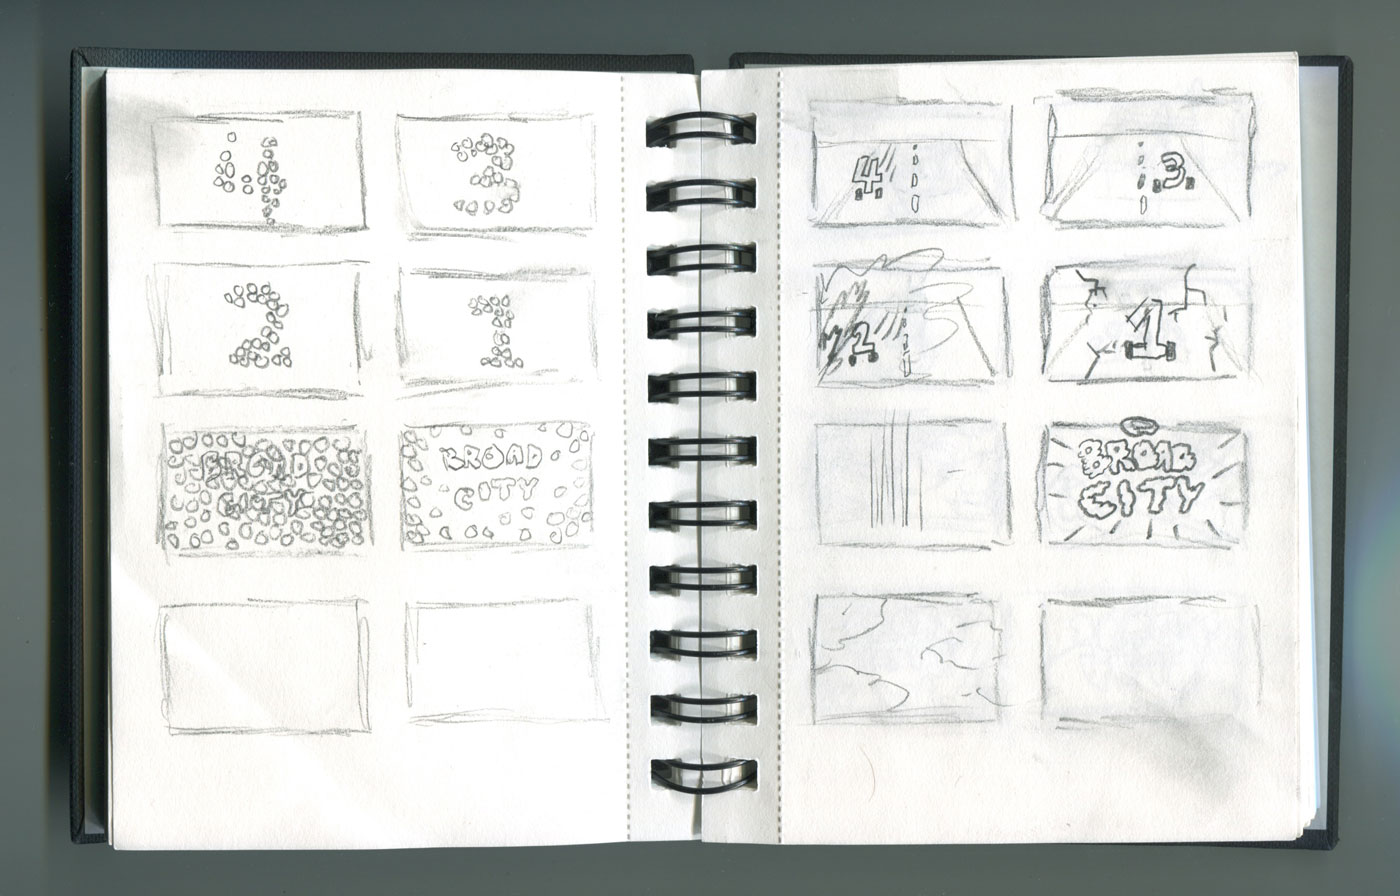 4
3
2
1
BROAD
CITY
BROAD
CITY
4
3
2
1
BROAD
CITY